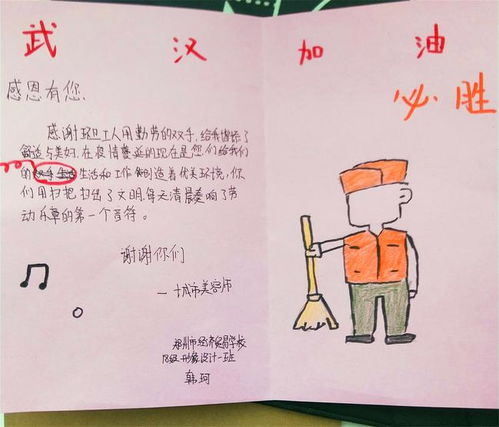 武汉加油
必胜
感恩有您
感谢环卫工人用勤劳的双手,给我们添了
舒适与美妙,在疫情蔓延的现在是您们给我们
的生活和工作创造着优美环境,你
们用扫把扫出了文明,每天清晨奏响了劳
动乐章的第一个音符。
谢谢你们
—城市美容师
郑州市经济贸易学校
18级形象设计一班
韩珂